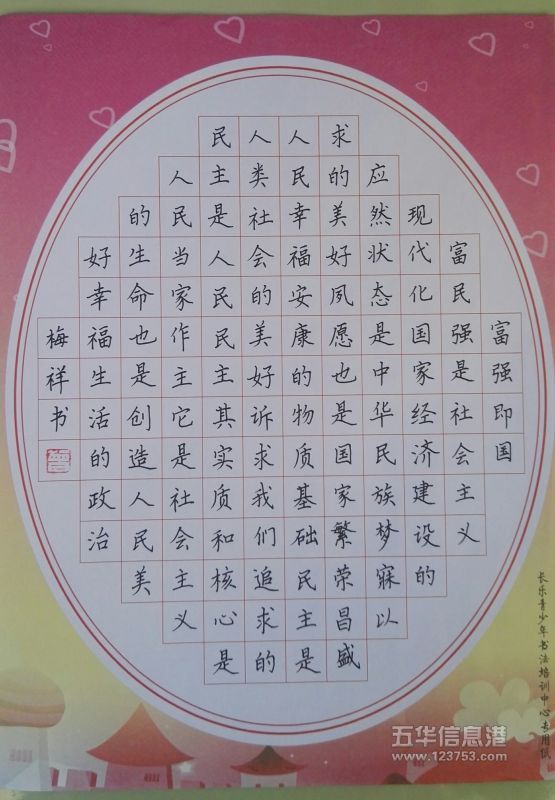 富强即国
富民强是社会主义
现代化国家经济建设的
应然状态是中华民族梦寐以
求的美好夙愿也是国家繁荣昌盛
人民幸福安康的物质基础民主是
人类社会的美好诉求我们追求的
民主是人民民主其实质和核心是
人民当家作主它是社会主义
的生命也是创造人民美
好幸福生活的政治
梅祥书
长乐青少年书法培训中心专用纸
五华信息港
www.123753.com